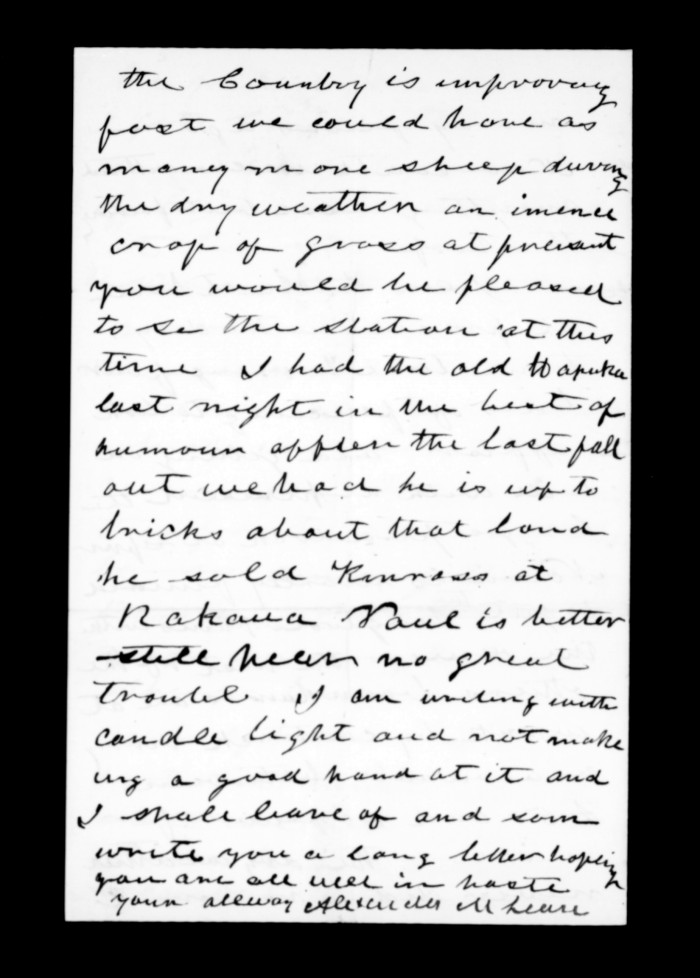 the Country is improving
fast we could have as
maney more sheep during
the dry weather an imence
crop of grass at presant
you would be pleased
to se the station at this
time I had the old Hapuka
last night in the best of
humoun aftter the last fall
out we had he is up to
tricks about that land
he sold Kinross at
Rakaua Paul is better
still near no great
troubl I am writing with
candle light and not make
ing a good hand at it and
I shall leave of and som
write you a long letter hoping
you are all well in haste
yours allway Alexander McLean